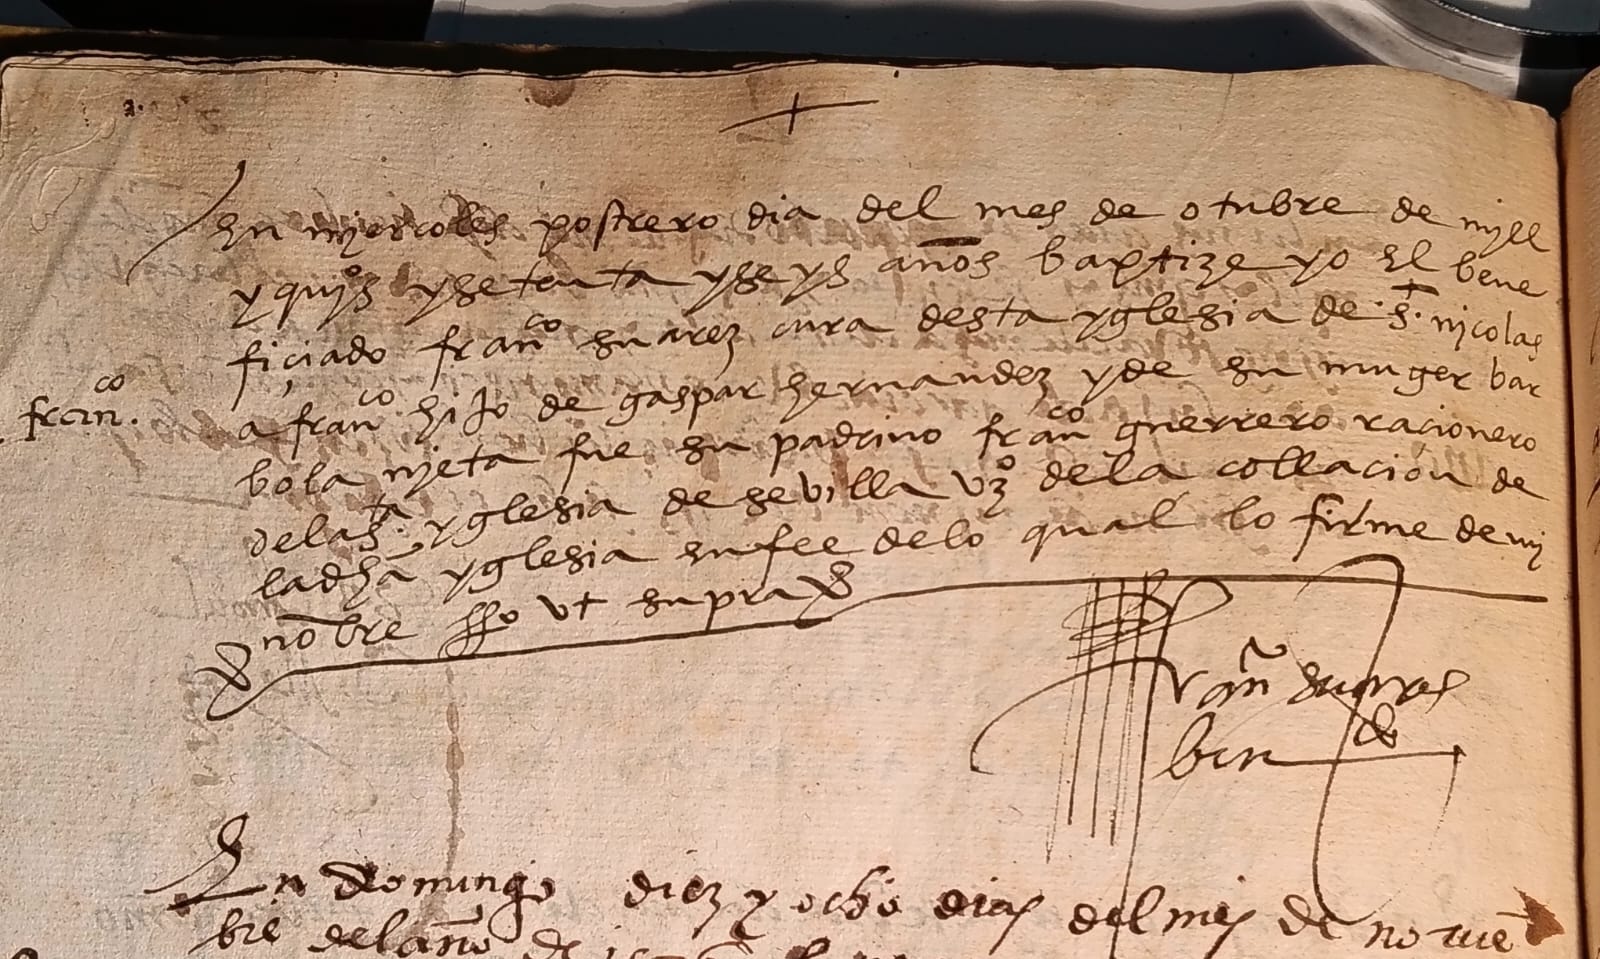 +
En mjercoles postrero dia del mes de otubre de mjll
y quiºs y setenta y seys años baptize yo el bene
fiçiado franco suarez cura desta yglesia de S.t nicolas
franco.
a franco hijo de gaspar hernandez y de su muger bar
bola njeta fue su padrino franco guerrero racionero
de la s.ta yglesia de sevilla vzº de la collacion de
la dha yglesia en fee de lo qual lo firme de mj
nobre ffo ut supra
fran suares
bendo
En domingo diez y ocho dias del mes de novie
bre del año de